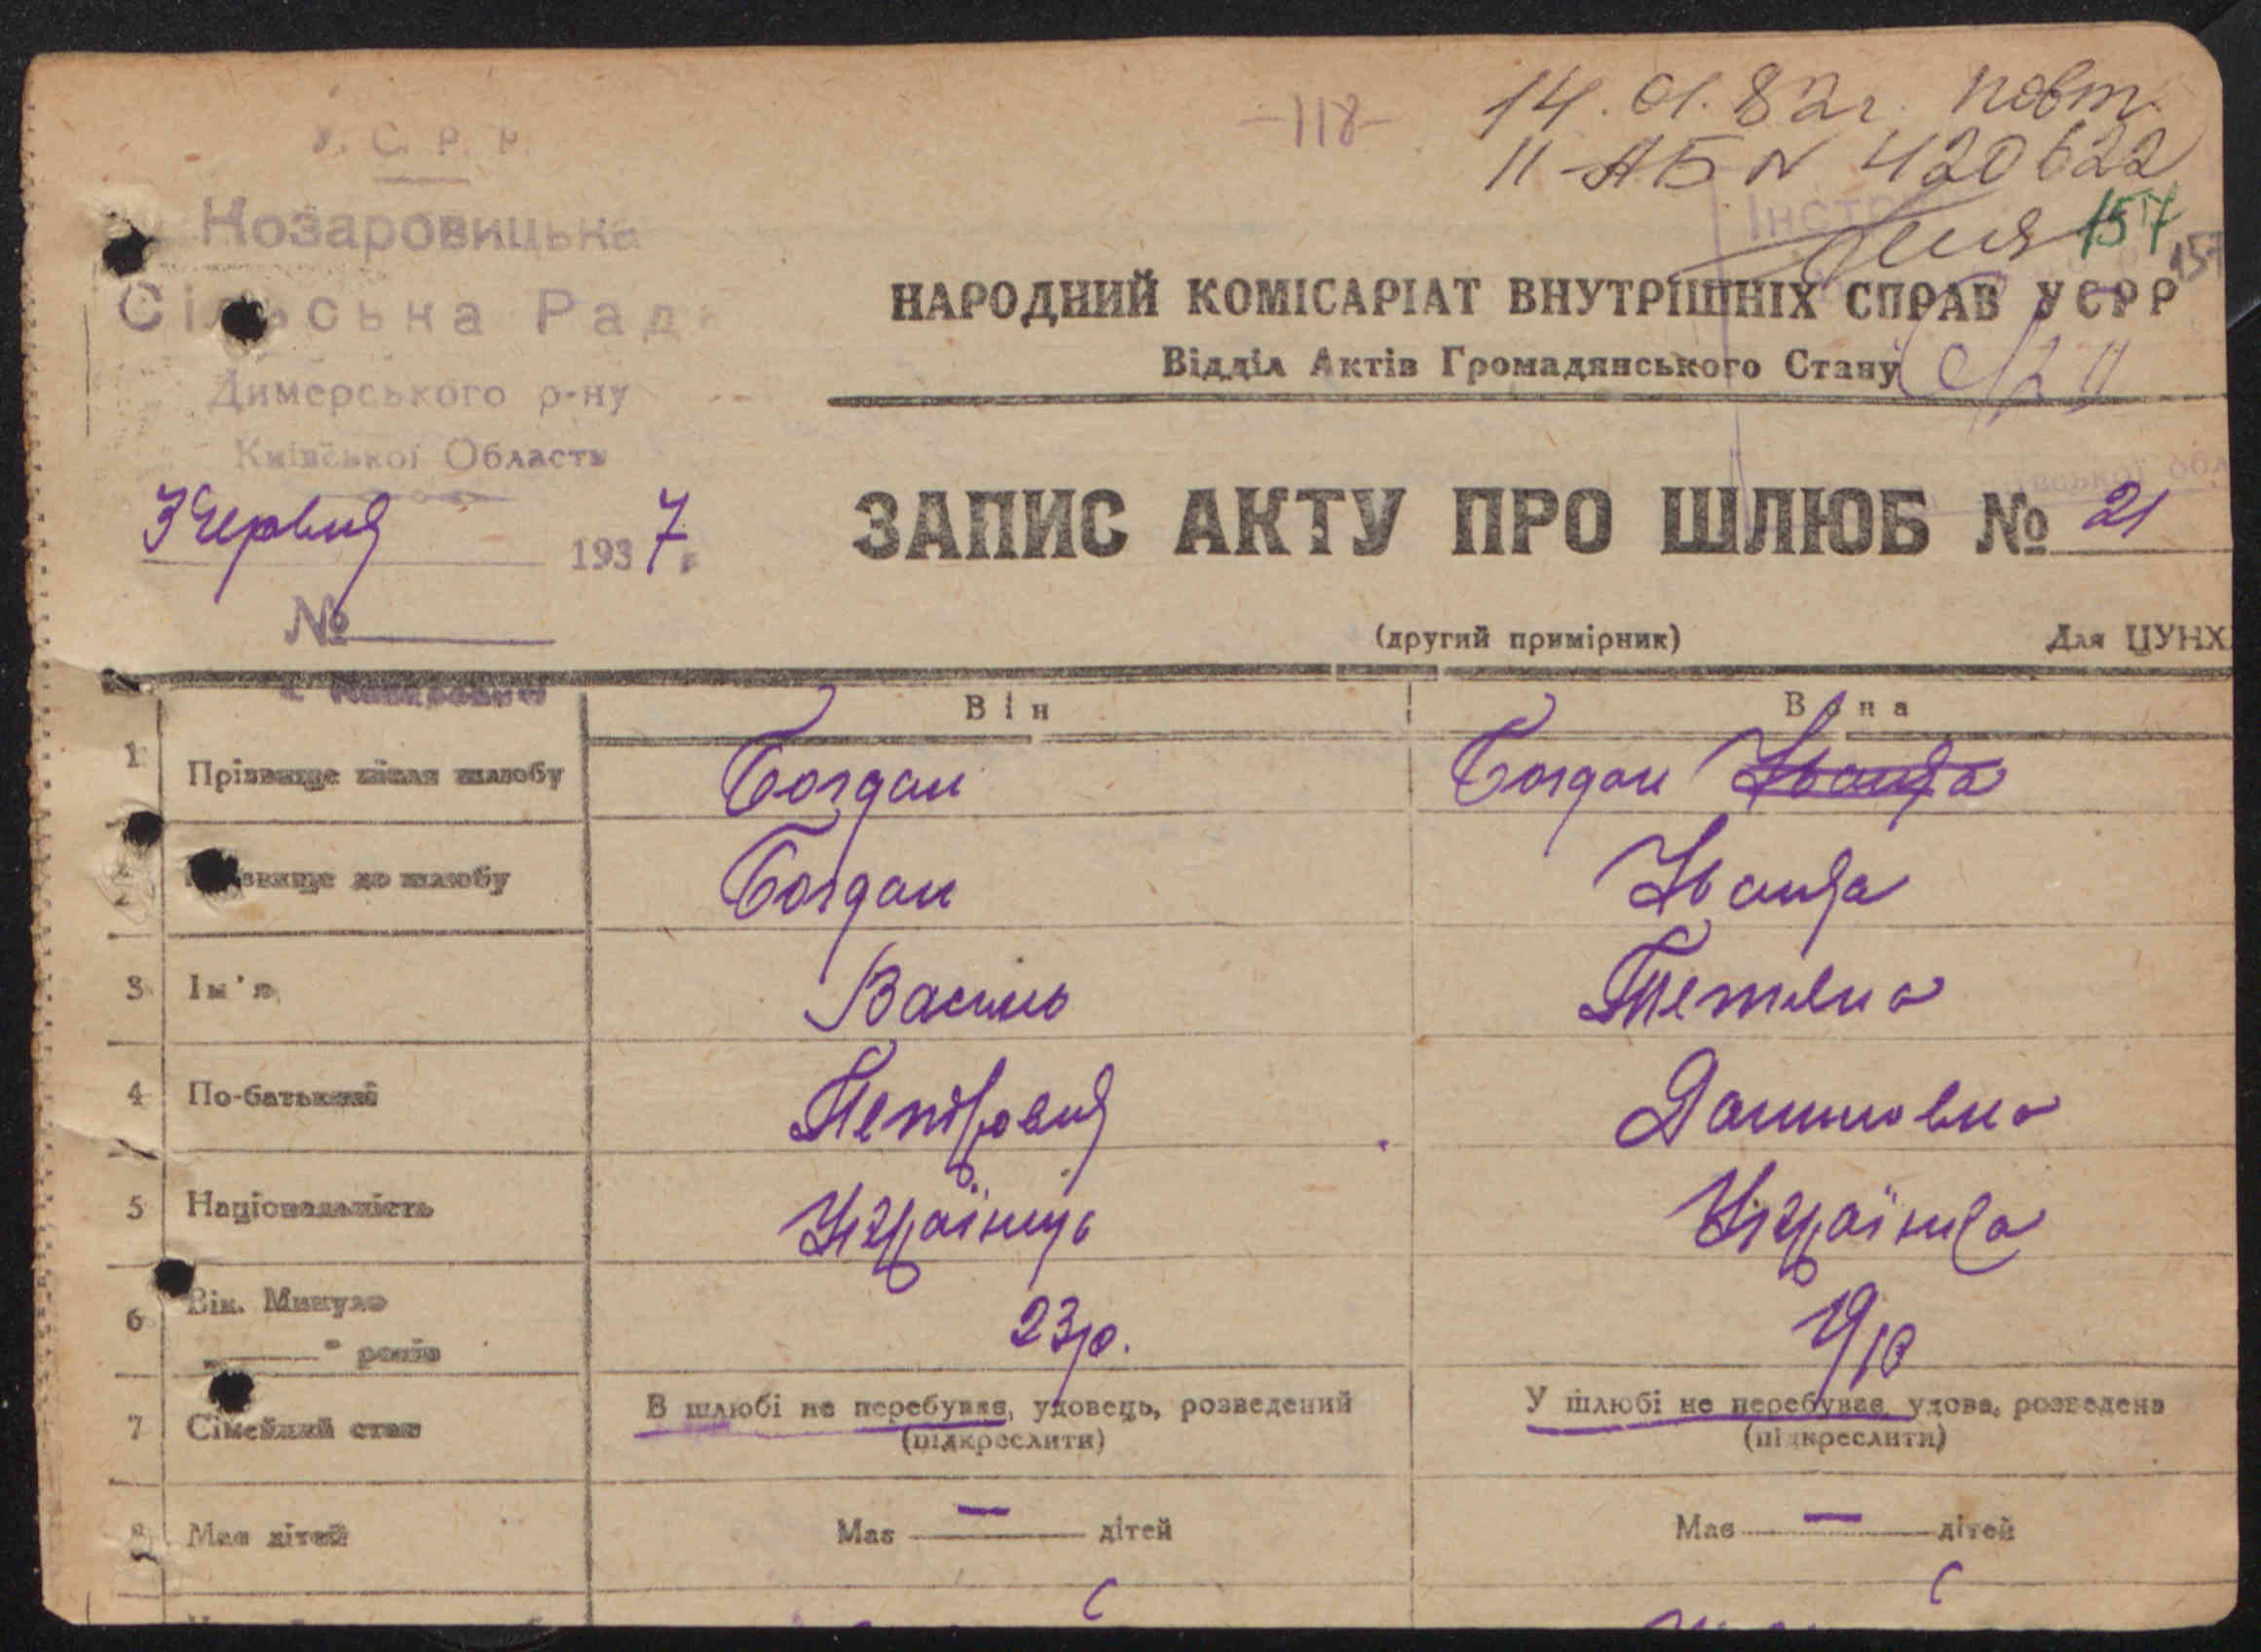 -118-
14.01.82г. повт.
II-АБ N 420622
157
157
У. С. Р. Р.
Нозаровицька
Сільська Рада
Димерського р-ну
Київської Області
3 Червня 1937 р.
№
НАРОДНИЙ КОМІСАРІАТ ВНУТРІШНІХ СПРАВ УСРР
Відділ Актів Громадянського Стану
ЗАПИС АКТУ ПРО ШЛЮБ № 21
(другий примірник) Для ЦУНХ
Він Вона
1 Прізвище після шлюбу Богдан Богдан Іванца
Прізвище до шлюбу Богдан
3 Ім'я Василь Тетяна
4 По-батькові Петрович Даниловна
5 Національність Українець Українка
6 Вік. Минуло 23р. 19р
років
7 Сімейний стан В шлюбі не перебував, удовець, розведений У шлюбі не перебував, удова, розведена
(підкреслити) (підкреслити)
8 Має дітей Має — дітей Має — дітей